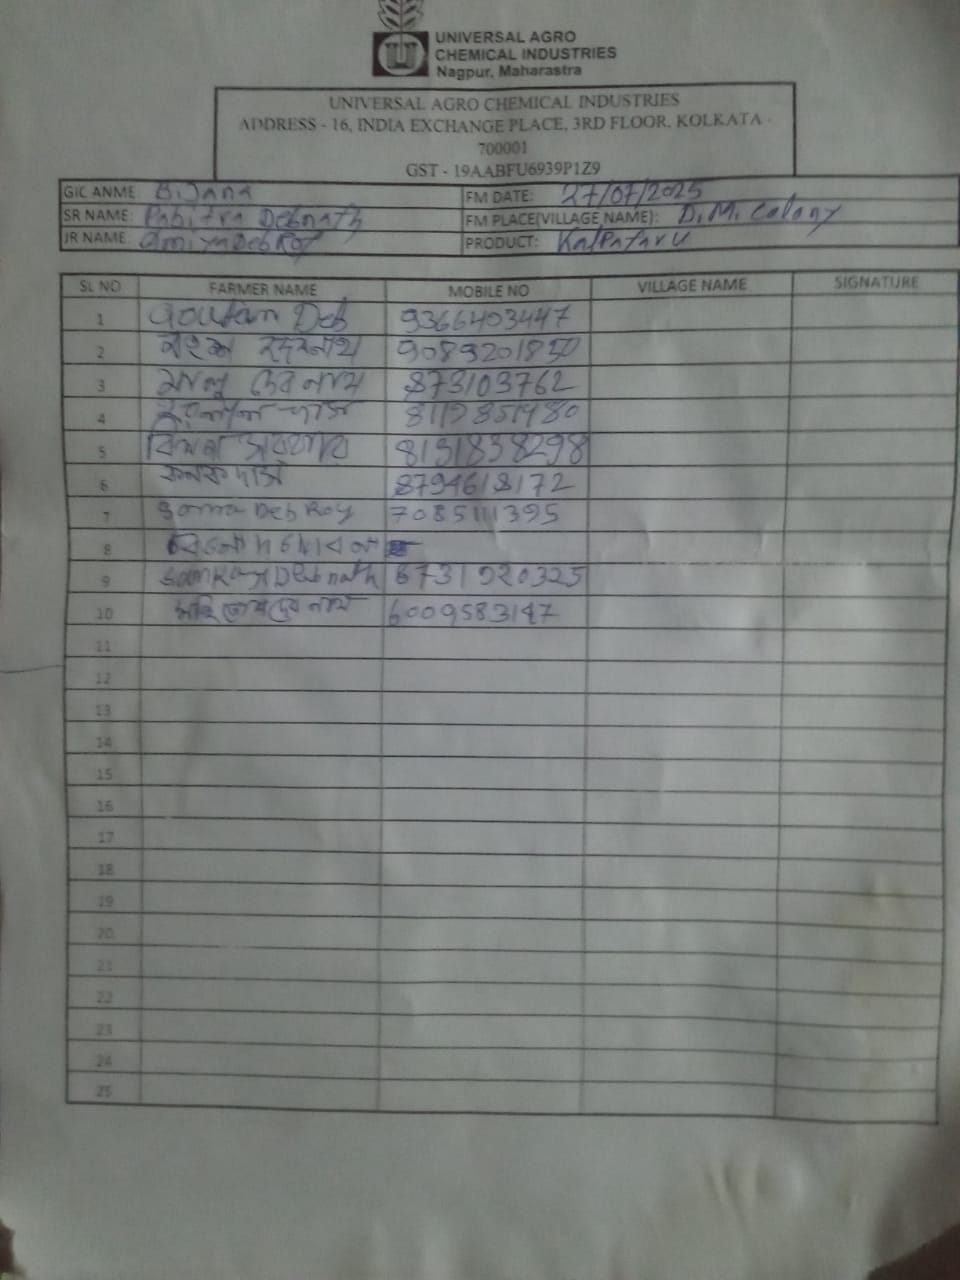 UNIVERSAL AGRO
CHEMICAL INDUSTRIES
Nagpur, Maharastra
UNIVERSAL AGRO CHEMICAL INDUSTRIES
ADDRESS - 16, INDIA EXCHANGE PLACE, 3RD FLOOR, KOLKATA -
700001
GST - 19AABFU6939P1Z9
GIC ANME BiJana FM DATE: 27/07/2025
SR NAME: Pabitra Debnath FM PLACE(VILLAGE NAME): D.M. Colony
JR NAME: DebRoy PRODUCT: Kalpataru
SL NO FARMER NAME MOBILE NO VILLAGE NAME SIGNATURE
1 Goutam Deb 9366403447
2 9089201850
3 দেবনাথ 873103762
4 দাস
5 সরকার 8131838298
6 কনক দাস 8794618172
7 Soma Deb Roy 7085111395
8
9 Debnath 8731920325
10 দেবনাথ 6009583147
11
12
13
14
15
16
17
18
19
20
21
22
23
24
25